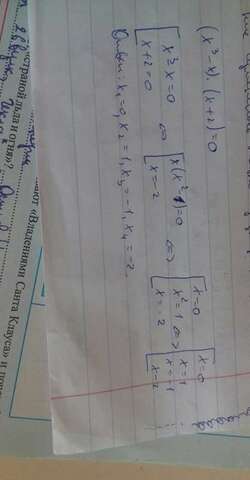 (x³-x)·(x+2)=0
[x³-x=0 ⇔ [x(x²-1)=0 ⇔ [x=0
[x+2=0 [x=-2 [x²=1 ⇔ [x=0
[x=-2 [x=1
[x=-1
[x=-2
Ответ: x₁=0, x₂=1, x₃=-1, x₄=-2.
страной льда и огня»?
ают «Владениями Санта Клауса» и поче